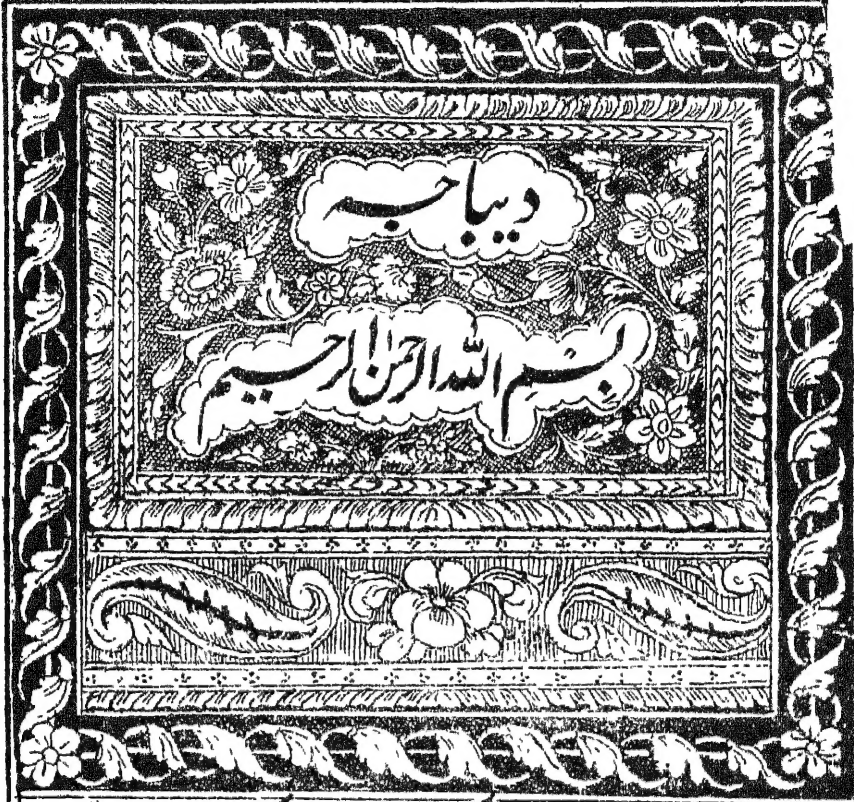 دیباچہ
بِسْمِ اللہ الرحمٰن الرحیم